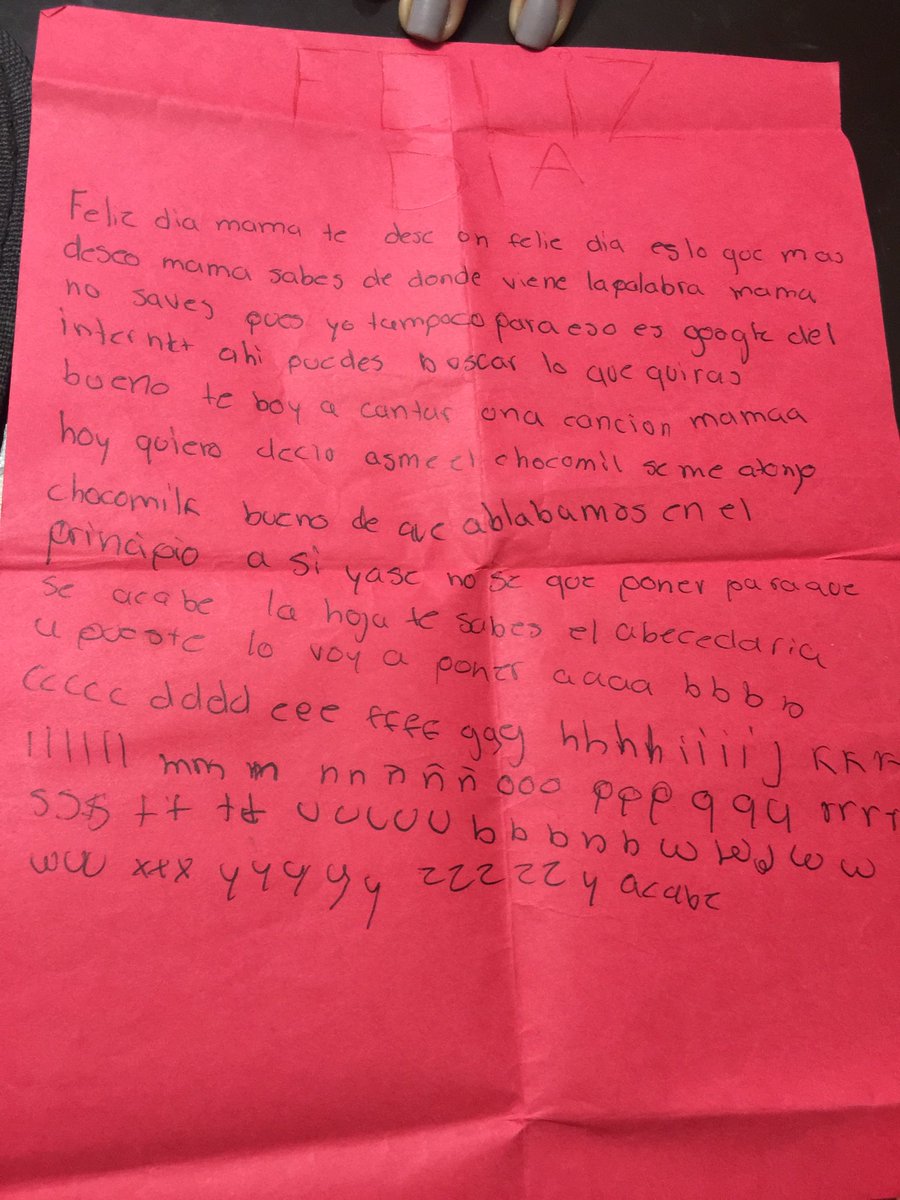 FELIZ
DIA
Feliz dia mama te dese on feliz dia es lo qoe mas
deseo mama sabes de donde viene lapalabra mama
no saves pues yo tampoco para eso es google del
internet ahi puedes buscar lo que quiras
bueno te boy a cantar ona cancion mamaa
hoy quiero decio asme el chocomil se me atonjo
chocomilk bueno de que ablabamos en el
principio a si yase no se que poner paraque
se acabe la hoja te sabes el abecedaria
lo voy a poner aaaa bbbb
ccccc dddd eee ffff ggg hhhh iiii j kkk
lllllll mm m nn n ñ ñ ooo ppp qqq rrrr
sss tt tt uuuuu bbbbb wwwww
ww xxx yyyyy zzzzz y acabe